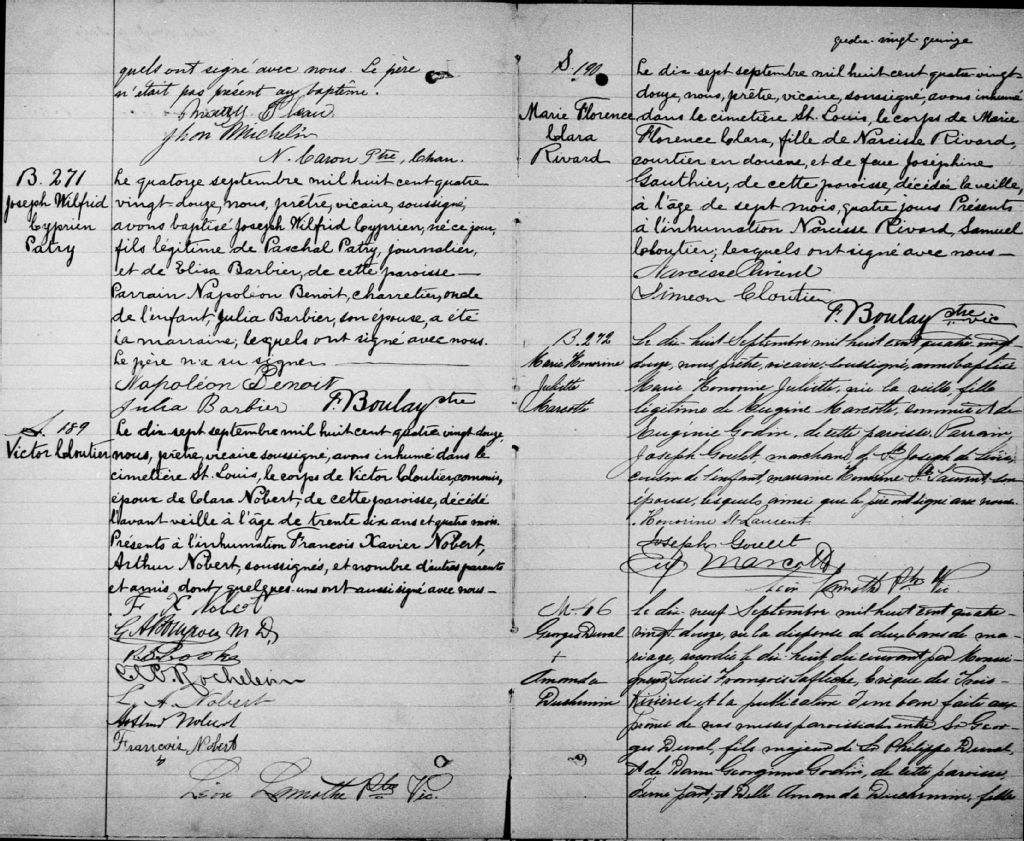 quels ont signé avec nous. Le père
n'était pas présent au baptême.
Jhon Michelin
N. Caron Ptre, Chan.
B. 271
Joseph Wilfrid
Cyprien
Patry
Le quatorze septembre mil huit cent quatre
vingt-douze, nous, prêtre, vicaire, soussigné,
avons baptisé Joseph Wilfrid Cyprien, né ce jour,
fils légitime de Paschal Patry, journalier,
et de Elisa Barbier, de cette paroisse —
Parrain Napoléon Benoit, charretier, oncle
de l'enfant, Julia Barbier, son épouse, a été
la marraine, lesquels ont signé avec nous.
Le père n'a su signer
Napoléon Benoit
Julia Barbier F. Boulay ptre
S. 189
Victor Cloutier
Le dix sept septembre mil huit cent quatre vingt douze,
nous, prêtre, vicaire soussigné, avons inhumé dans le
cimetière St. Louis, le corps de Victor Cloutier, commis,
époux de Clara Nobert, de cette paroisse, décédé
l'avant veille à l'âge de trente six ans et quatre mois.
Présents à l'inhumation François Xavier Nobert,
Arthur Nobert, soussignés, et nombre d'autres parents
et amis dont quelques-uns ont aussi signé avec nous —
F X Nobert
M. D,
Rocheleau
L. A. Nobert
Arthur Nobert
François Nobert
Léon Lamothe Ptre Vic.
quatre-vingt-quinze
S. 190
Marie Florence
Clara
Rivard
Le dix sept septembre mil huit cent quatre-vingt-
douze, nous, prêtre, vicaire, soussigné, avons inhumé
dans le cimetière St. Louis, le corps de Marie
Florence Clara, fille de Narcisse Rivard,
courtier en douane, et de feue Joséphine
Gauthier, de cette paroisse, décédée la veille,
à l'âge de sept mois, quatre jours Présents
à l'inhumation Narcisse Rivard, Samuel
Cloutier, lesquels ont signé avec nous —
Narcisse Rivard
Simeon Cloutier
F. Boulay ptre vic
B. 272
Marie Honorine
Juliette
Marcotte
Le dix-huit Septembre mil huit cent quatre vingt
douze, nous, prêtre, vicaire, soussigné, avons baptisé
Marie Honorine Juliette, née la veille, fille
légitime de Eugène Marcotte, commis et de
Eugénie Godin, de cette paroisse. Parrain,
Joseph Goulet marchand de St Joseph de Lévis,
cousin de l'enfant, marraine Honorine St Laurent son
épouse, lesquels, ainsi que le père ont signé avec nous.
Honorine St Laurent
Joseph Goulet
Eug Marcotte
Léon Lamothe Ptr Vic.
M. 46
Georges Duval
+
Amanda
Duchemin
Le dix-neuf Septembre mil huit cent quatre-
vingt douze, vu la dispense de deux bans de ma-
riage, accordée le dix-huit du courant par Monsei-
gneur Louis François Laflèche, Evêque des Trois-
Rivières et la publication d'un ban faite aux
prônes de nos messes paroissiales entre Sr Geor-
ges Duval, fils majeur de Sr Philippe Duval
et de Dame Georgianne Godin, de cette paroisse,
d'une part, et Delle Amanda Duchemin, fille